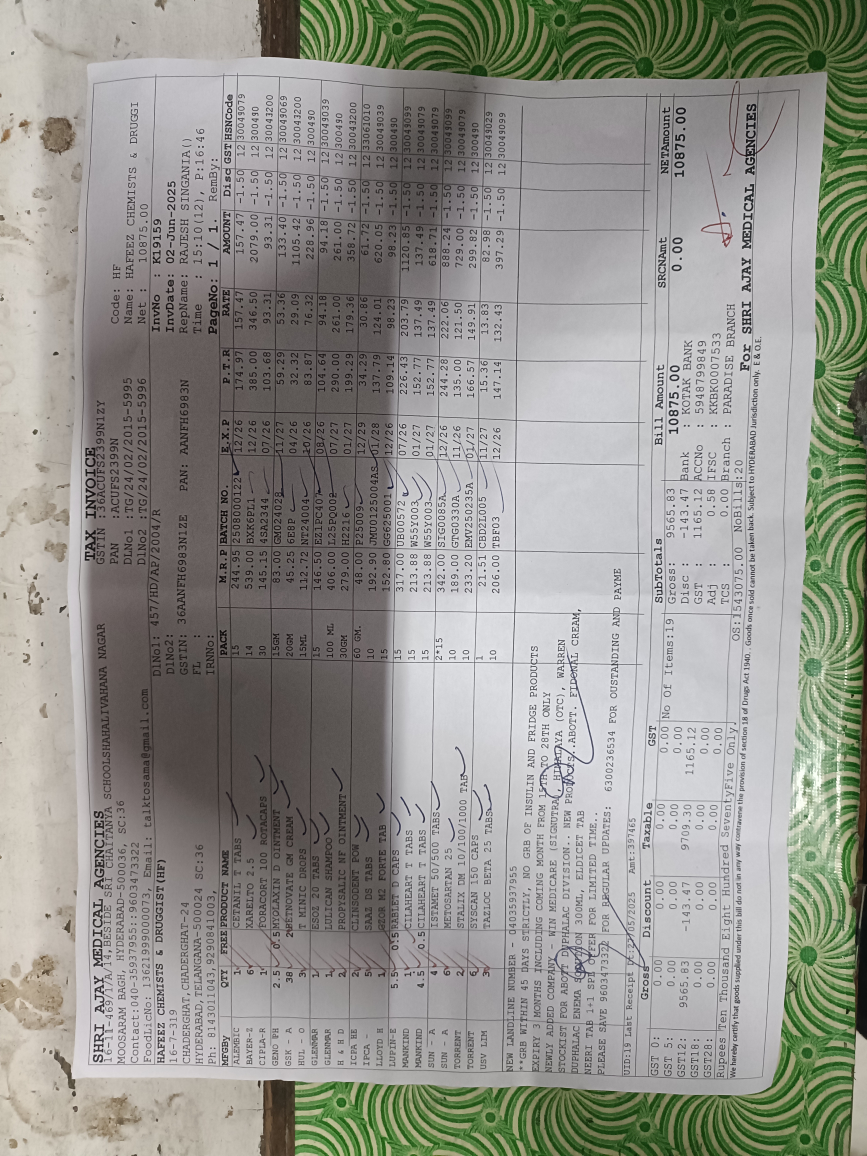 TAX INVOICE
SHRI AJAY MEDICAL AGENCIES
16-11-469/7/A/14,BESIDE SRI CHAITANYA SCHOOLSHAHALIVAHANA NAGAR
MOOSARAM BAGH, HYDERABAD-500036, SC:36
Contact:040-35937955::9603473322
FoodLicNo: 13621999000073, Email: talktosama@gmail.com
GSTIN :36ACUFS2399N1ZY
PAN :ACUFS2399N
DLNo1 :TG/24/02/2015-5995
DLNo2 :TG/24/02/2015-5996
Code: HF
Name: HAFEEZ CHEMISTS & DRUGGI
Net : 10875.00
HAFEEZ CHEMISTS & DRUGGIST(HF)
16-7-319
CHADERGHAT,CHADERGHAT-24
HYDERABAD,TELANGANA-500024 SC:36
Ph: 8143011043,9290841003
DlNo1: 457/HD/AP/2004/R
DlNo2:
GSTIN: 36AANFH6983N1ZE PAN: AANFH6983N
FL :
IRNNo:
InvNo : K19159
InvDate: 02-Jun-2025
RepName: RAJESH SINGANIA()
Time : 15:10(12), P:16:46
PageNo: 1 / 1. RemBy:
MFGBy QTY FREE PRODUCT NAME PACK M.R.P BATCH NO. E.X.P P.T.R RATE AMOUNT Disc GST HSNCode
ALEMBIC 1 TETANIL T TABS 15 244.95 2508000122 12/26 174.97 157.47 157.47 -1.50 12 30049079
BAYER-Z 6 XARELTO 2.5 14 539.00 BXK6PL1 12/26 385.00 346.50 2079.00 -1.50 12 300490
CIPLA-R 1 FORACORT 100 ROTACAPS 30 145.15 4SA2344 07/26 103.68 93.31 93.31 -1.50 12 30043200
GENO PH 2.5 0.5 MYOLAXIN D OINTMENT 15GM 83.00 GM024028 11/27 59.29 53.36 133.40 -1.50 12 30049069
GSK - A 38 2 BETNOVATE GM CREAM 20GM 45.25 6EBP 04/26 32.32 29.09 1105.42 -1.50 12 30043200
HUL - O 3 T MINIC DROPS 15ML 112.72 NT24004 10/26 83.87 76.32 228.96 -1.50 12 300490
GLENMAR 1 ESOZ 20 TABS 15 146.50 EZ1PC407 08/26 104.64 94.18 94.18 -1.50 12 30049039
GLENMAR 1 LULICAN SHAMPOO 100 ML 406.00 07/27 290.00 261.00 261.00 -1.50 12 300490
H & H D 2 PROPYSALIC NF OINTMENT 30GM 279.00 H2216 01/27 199.29 179.36 358.72 -1.50 12 30043200
ICPA HE 2 CLINSODENT POW 60 GM. 48.00 P25009 12/29 34.29 30.86 61.72 -1.50 12 33061010
IPCA - 5 SAAZ DS TABS 10 192.90 JMD0125004AS 01/28 137.79 124.01 620.05 -1.50 12 30049039
LLOYD H 1 GEOR M2 FORTE TAB 15 152.80 GG625001 12/26 109.14 98.23 98.23 -1.50 12 300490
LUPIN-E 5.5 0.5 RABLET D CAPS 15 317.00 UB00572 07/26 226.43 203.79 1120.85 -1.50 12 30049099
MANKIND 1 CILAHEART T TABS 15 213.88 W55Y003 01/27 152.77 137.49 137.49 -1.50 12 30049079
MANKIND 4.5 0.5 CILAHEART T TABS 15 213.88 W55Y003 01/27 152.77 137.49 618.71 -1.50 12 30049079
SUN - A 4 ISTAMET 50/500 TABS 2*15 342.00 SIG0085A 12/26 244.28 222.06 888.24 -1.50 12 30049099
SUN - A 6 METOSARTAN 25 10 189.00 GTG0330A 11/26 135.00 121.50 729.00 -1.50 12 30049079
TORRENT 2 STALIX DM 10/100/1000 TAB 10 233.20 EMV250235A 01/27 166.57 149.91 299.82 -1.50 12 300490
TORRENT 6 SYSCAN 150 CAPS 1 21.51 CBD2L005 11/27 15.36 13.83 82.98 -1.50 12 30049029
USV LIM 3 TAZLOC BETA 25 TABS 10 206.00 TBF03 12/26 147.14 132.43 397.29 -1.50 12 30049099
NEW LANDLINE NUMBER - 04035937955
**GRB WITHIN 45 DAYS STRICTLY, NO GRB OF INSULIN AND FRIDGE PRODUCTS
EXPIRY 3 MONTHS INCLUDING COMING MONTH FROM 15TH TO 28TH ONLY
NEWLY ADDED COMPANY - WIN MEDICARE (SIGNUTRA), HIMALAYA (OTC), WARREN
STOCKIST FOR ABOTT DUPHALAC DIVISION.. NEW PRODUCTS..ABOTT. FIDONAL CREAM,
DUPHALAC ENEMA SOLUTION 300ML, ELDICET TAB
NEBRT TAB 1+1 SPL OFFER FOR LIMITED TIME..
PLEASE SAVE 9603473322 FOR REGULAR UPDATES: 6300236534 FOR OUSTANDING AND PAYME
UID:19 Last Receipt Dt:27/05/2025 Amt:397465
Gross Discount Taxable GST
GST 0: 0.00 0.00 0.00 0.00
GST 5: 0.00 0.00 0.00 0.00
GST12: 9565.83 -143.47 9709.30 1165.12
GST18: 0.00 0.00 0.00 0.00
GST28: 0.00 0.00 0.00 0.00
No Of Items:19
SubTotals
Gross: 9565.83
Disc : -143.47
GST : 1165.12
Adj : 0.58
TCS : 0.00
Bill Amount SRCNAmt NETAmount
10875.00 0.00 10875.00
Bank : KOTAK BANK
ACCNo : 5948799849
IFSC : KKBK0007533
Branch : PARADISE BRANCH
Rupees Ten Thousand Eight Hundred SeventyFive Only. OS:1543075.00 NoBills:20
For SHRI AJAY MEDICAL AGENCIES
We hereby certify that goods supplied under this bill do not in any way contravene the provision of section 18 of Drugs Act 1940. . Goods once sold cannot be taken back. Subject to HYDERABAD Jurisdiction only. E & O.E.